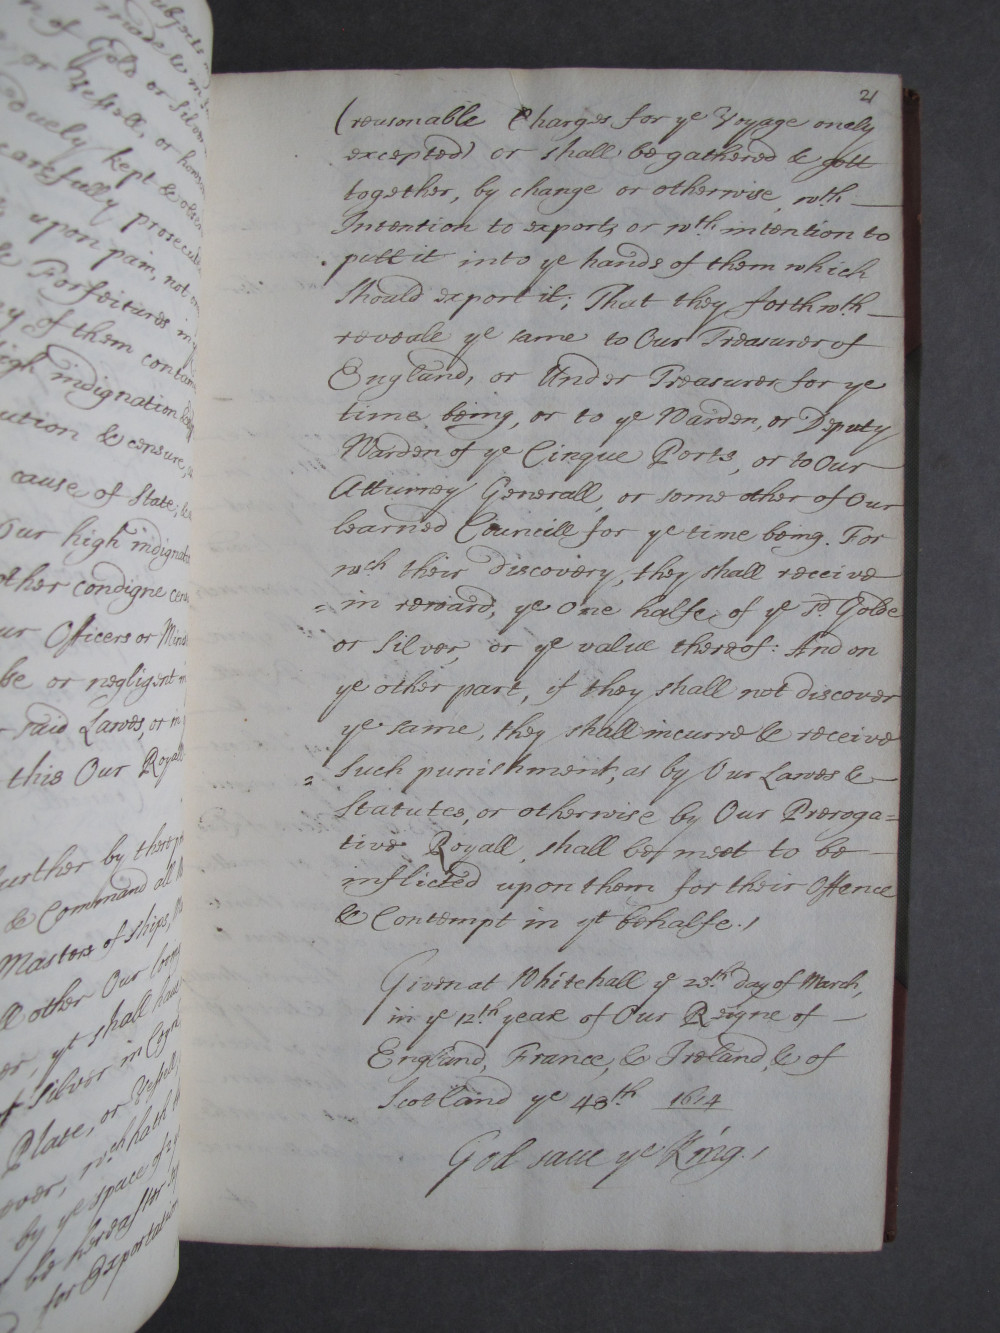 subjects
made & in
n of Gold or Silver
or Vessell, or
duely kept & obser
carefully prosecute
upon pain, not on
& Forfeitures in
y of them contain
high indignation &
ution & censure,
cause of State;
Our high indignati
other condigne cens
ur Officers or Minis
be or negligent in
said Lawes, or in
this Our Royall
further by these
& Command all
Masters of ships,
ll other Our loving
er, yt shall have
Silver in Coyn
Plate, or Vessell,
over, wch hath
by ye space of 2
be hereafter
for Exportation
21
(reasonable Charges for ye Voyage onely
excepted) or shall be gathered & gott
together, by change or otherwise, wth
Intention to export, or wth intention to
putt it into ye hands of them which
should export it; That they forthwth
reveale ye same to Our Treasurer of
England, or Under Treasurer for ye
time being, or to ye Warden, or Deputy
Warden of ye Cinque Ports, or to Our
Atturney Generall, or some other of Our
learned Councill for ye time being. For
wch their discovery, they shall receive
= in reward, ye one halfe of ye sd. Golde
or Silver, or ye value thereof: And on
ye other part, if they shall not discover
ye same, they shall incurre & receive
= such punishment, as by Our Lawes &
Statutes, or otherwise by Our Preroga=
tive Royall, shall be meet to be
inflicted upon them for their Offence
& Contempt in yt behalfe./
Given at Whitehall ye 23th day of March,
in ye 12th yeare of Our Reigne of
England, France, & Ireland, & of
Scotland ye 48th 1614
God save ye King./